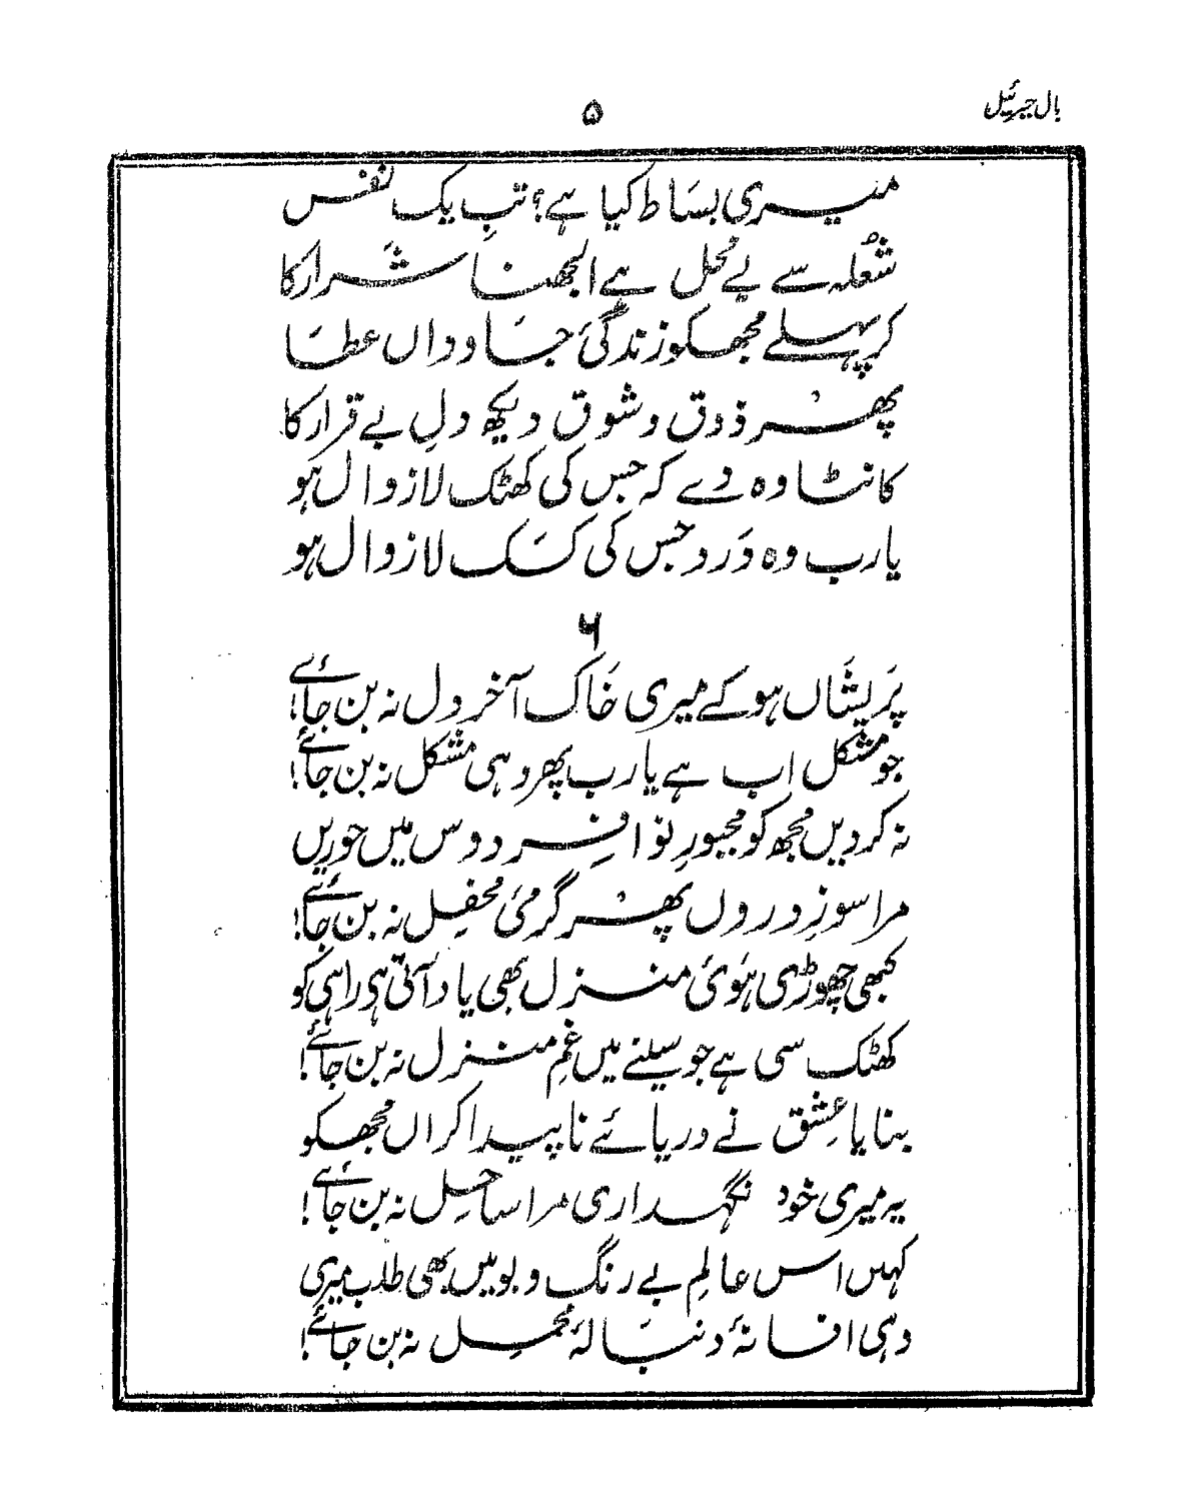 بال جبرئیل
۵
میری بساط کیا ہے؟ تبِ یک نفس
شُعلہ سے بے محل ہے الجھنا شرار کا
کر پہلے مجھکو زندگیٔ جاوداں عطا
پھر ذوق و شوق دیکھ دلِ بے قرار کا
کانٹا وہ دے کہ جس کی کھٹک لازوال ہو
یارب وہ دَرد جس کی کسک لازوال ہو
۶
پریشاں ہو کے میری خاک آخر دل نہ بن جائے!
جو مشکل اب ہے یارب پھر وہی مشکل نہ بن جائے!
نہ کر دیں مجھ کو مجبورِ نوا فردوس میں حوریں
مرا سوزِ دروں پھر گرمیٔ محفل نہ بن جائے!
کبھی چھوڑی ہوئی منزل بھی یاد آتی ہی راہی کو
کھٹک سی ہے جو سینے میں غمِ منزل نہ بن جائے!
بنایا عِشق نے دریائے ناپیدا کراں مجھکو
یہ میری خود نگہداری مرا ساحِل نہ بن جائے!
کہیں اس عالمِ بے رنگ و بو میں بھی طلب میری
وہی افسانۂ دنبالۂ محمل نہ بن جائے!